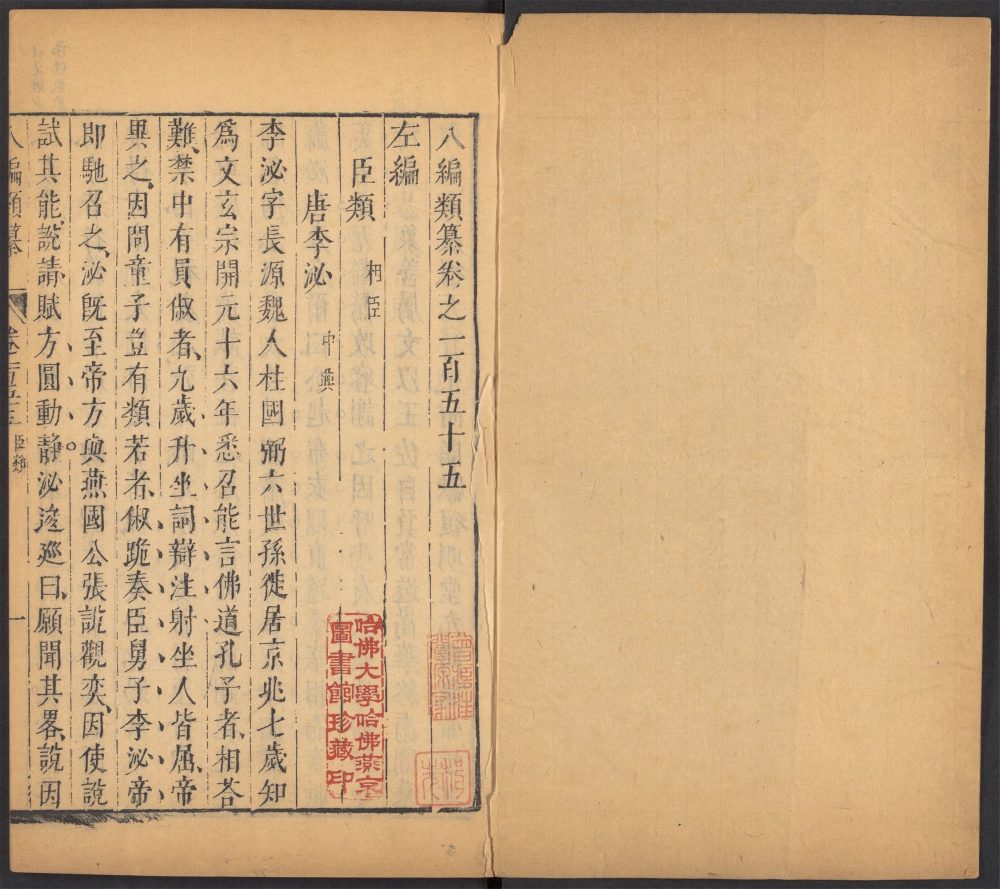 八編類纂卷之一百五十五
左編
臣類 相臣
唐李泌 中興
李泌字長源魏八柱國弼六世孫徙居京兆七歲知
爲文玄宗開元十六年悉召能言佛道孔子者相荅
難禁中有員俶者九歲升坐詞辯注射坐人皆屈帝
異之因問童子豈有類若者俶跪奏臣舅子李泌帝
即馳召之泌旣至帝方與燕國公張說觀奕因使說
試其能說請賦方圓動靜泌逡廵曰願聞其畧說因
八編類纂 卷 臣類 一
哈佛大學哈佛燕京
圖書館珍藏印